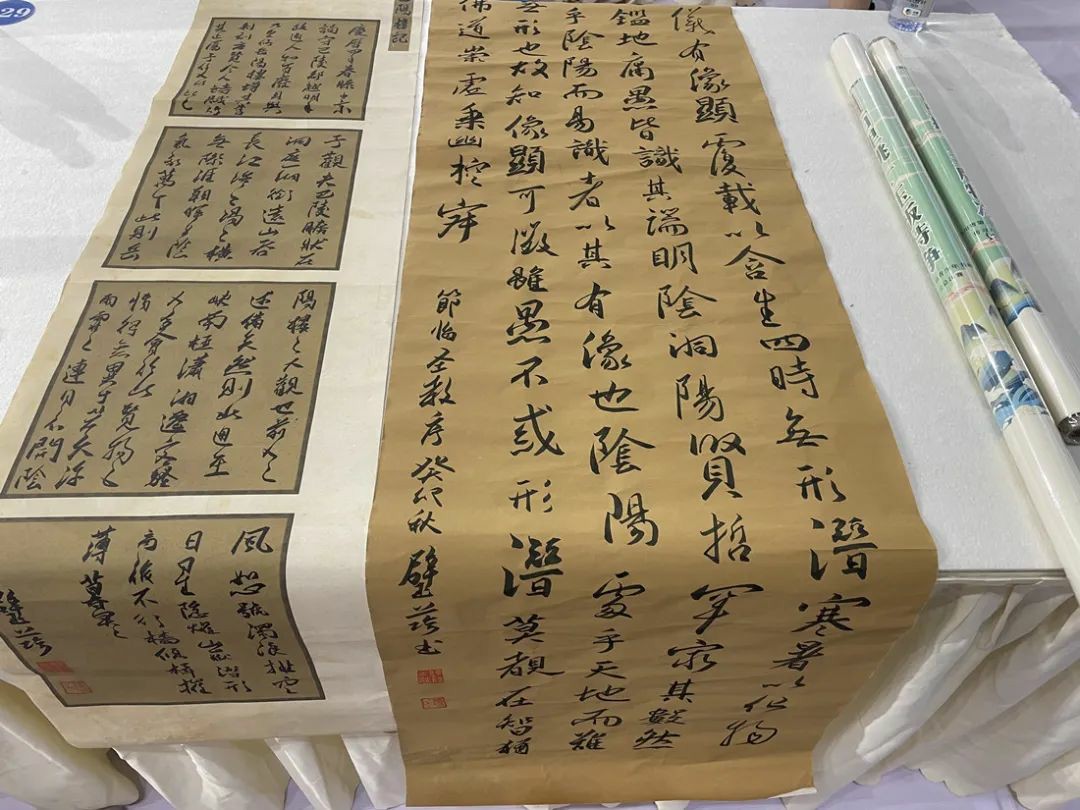 29
儀有像顯覆載以含生四時無形潛寒暑以化物
鑑地庸愚皆識其端明陰洞陽賢哲罕窮其數然
乎陰陽而易識者以其有像也陰陽處乎天地而難
無形也故知像顯可徵雖愚不惑形潛莫覩在智猶
佛道崇虛乘幽控寂
節临圣教序癸卯秋
陽樓記
慶曆四年春滕子京
謫守巴陵郡越明年
政通人和百廢具興
乃重修岳陽樓增其舊
制刻唐賢今人詩賦於
其上属予作文以記之
予觀夫巴陵勝狀在
洞庭一湖銜遠山吞
長江浩浩湯湯橫
無際涯朝暉夕陰
氣象萬千此則岳
陽樓之大觀也前人之
述備矣然則北通巫
峽南極瀟湘遷客騷
人多會於此覽物之
情得無異乎若夫淫
雨霏霏連月不開陰
風怒號濁浪排空
日星隱耀山岳潛形
商旅不行檣傾楫摧
薄暮冥冥